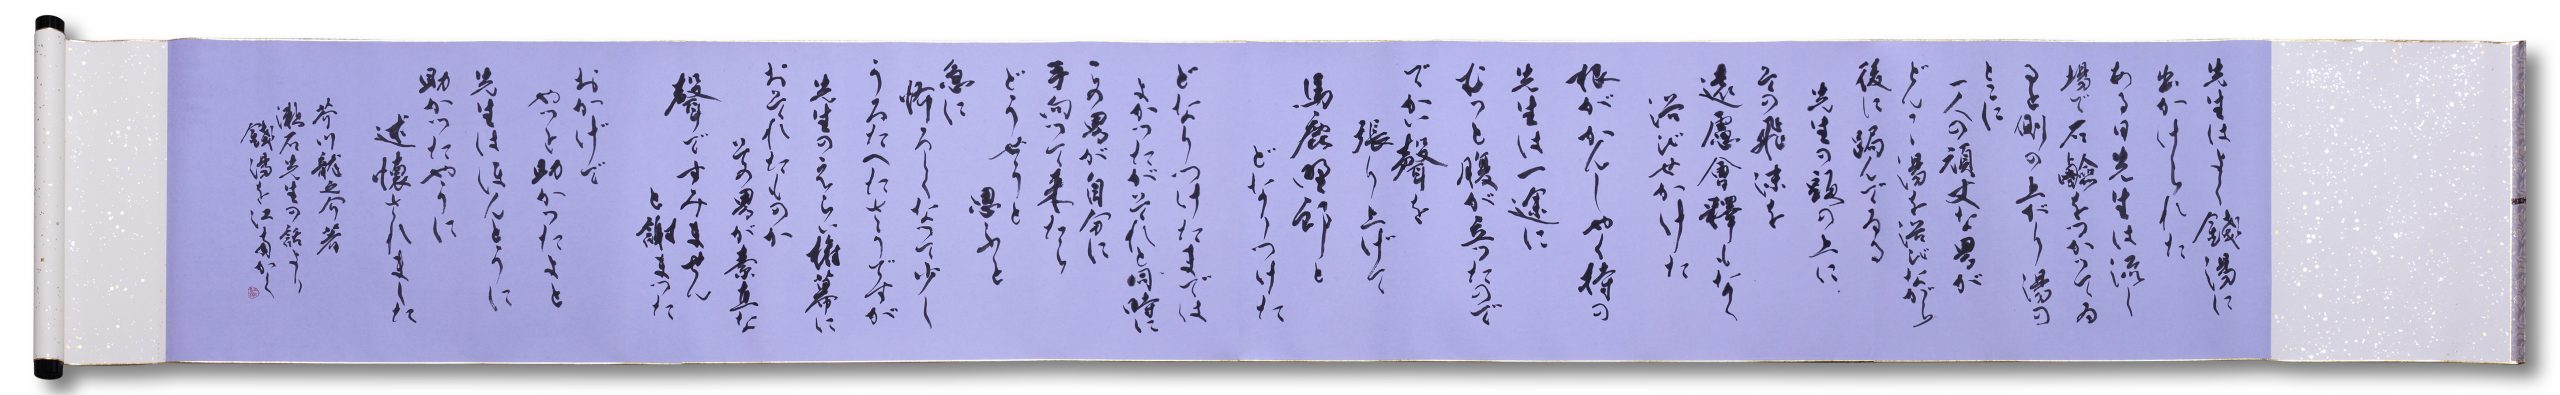 先生はよく銭湯に
出かけられた
ある日先生は流し
場で石鹸をつかつてゐ
ると側の上がり湯の
ところに
一人の頑丈な男が
どんどん湯を浴びながら
後に跼んでゐる
先生の頭の上に
その飛沫を
遠慮會釋もなく
浴びせかけた
根がかんしやく持の
先生は一途に
むつと腹が立つたので
でかい聲を
張り上げて
馬鹿野郎と
どなりつけた
どなりつけたまでは
よかつたがそれと同時に
この男が自分に
手向つて来たら
どうせうと
思ふと
急に
怖ろしくなつて少し
うろたへたさうですが
先生のえらい権幕に
おそれたものか
その男が素直な
聲ですみません
と謝まつた
おかげで
やつと助かつたよと
先生はほんとうに
助かつたやうに
述懐されました
芥川龍之介著
漱石先生の話より
銭湯を江南かく